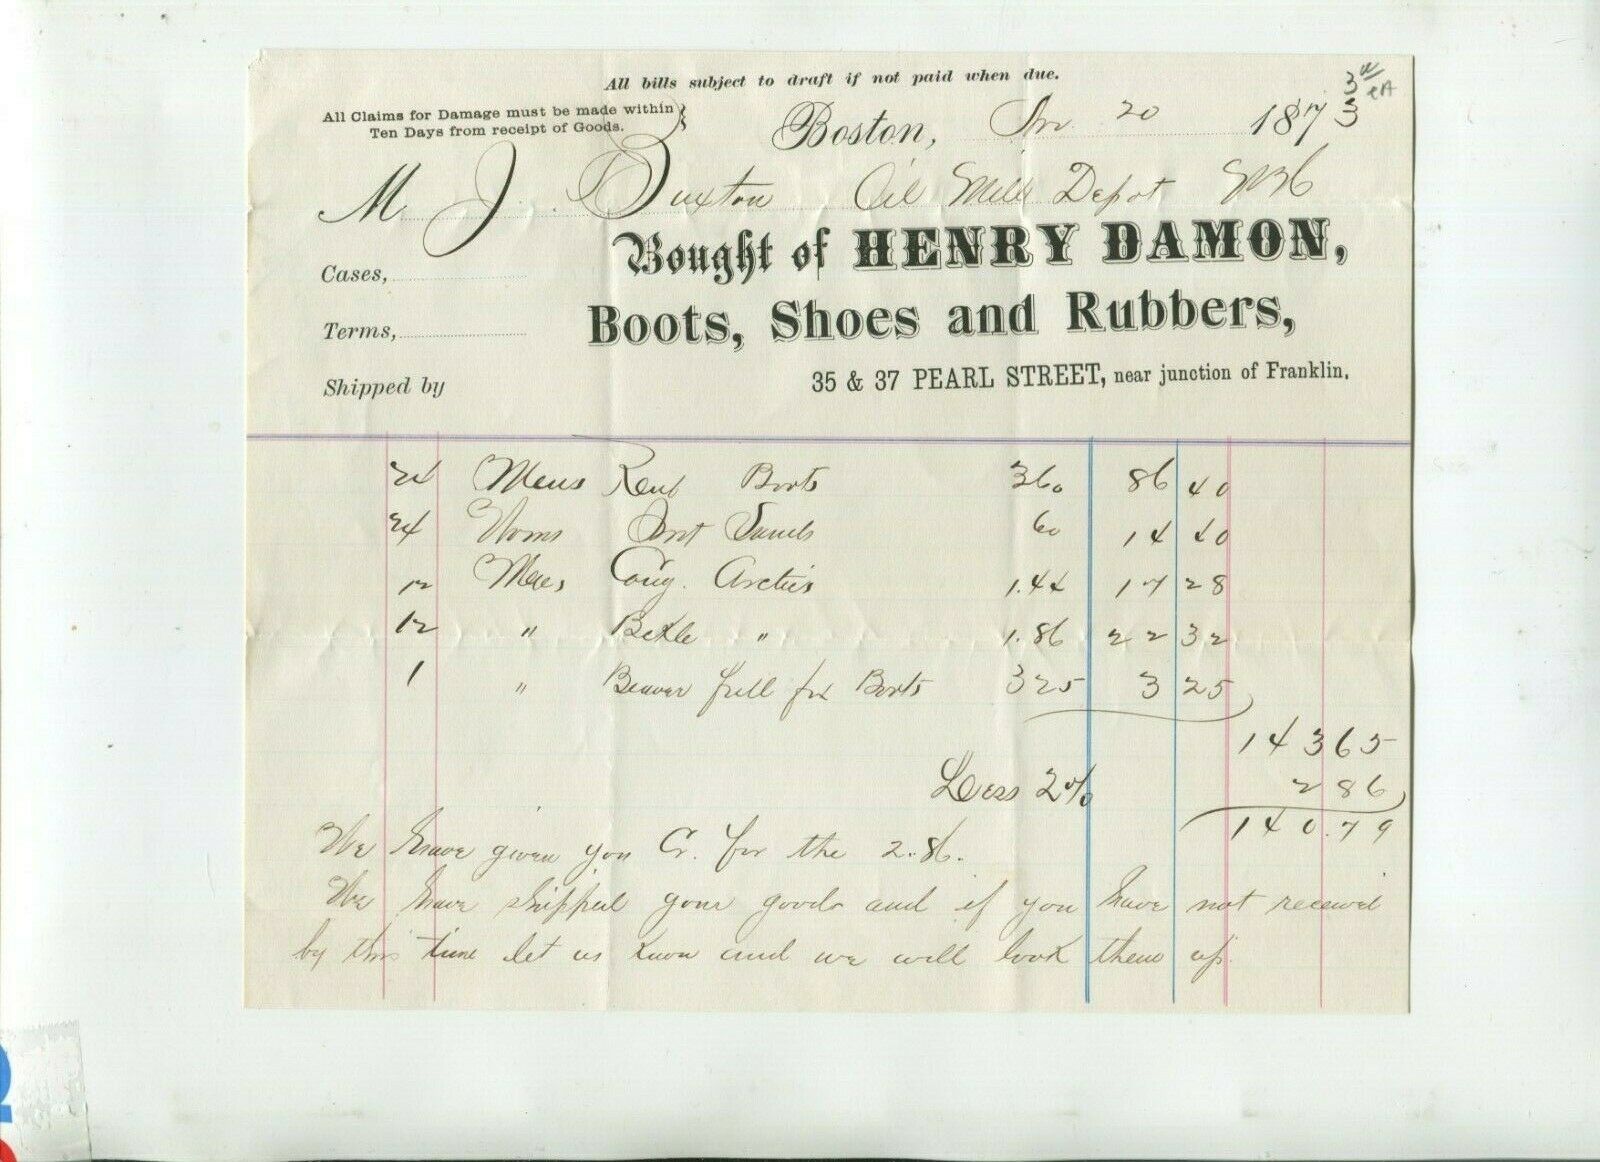 All bills subject to draft if not paid when due.
All Claims for Damage must be made within
Ten Days from receipt of Goods.
Boston, 20 1873
M J. Buxton Oil Mills Depot
Bought of HENRY DAMON,
Cases,
Boots, Shoes and Rubbers,
Terms,
35 & 37 PEARL STREET, near junction of Franklin.
Shipped by
24 Mens Boots 360 86 40
24 Woms Sands 60 14 40
12 Mens Cong. Arctics 1.44 17 28
12 " Bekle " 1.86 22 32
1 " Beaver for Boots 325 3 25
14365
Less 2% 286
140.79
We have given you Cr. for the 2.86.
We have shipped your goods and if you have not received
by this time let us know and we will look them up.